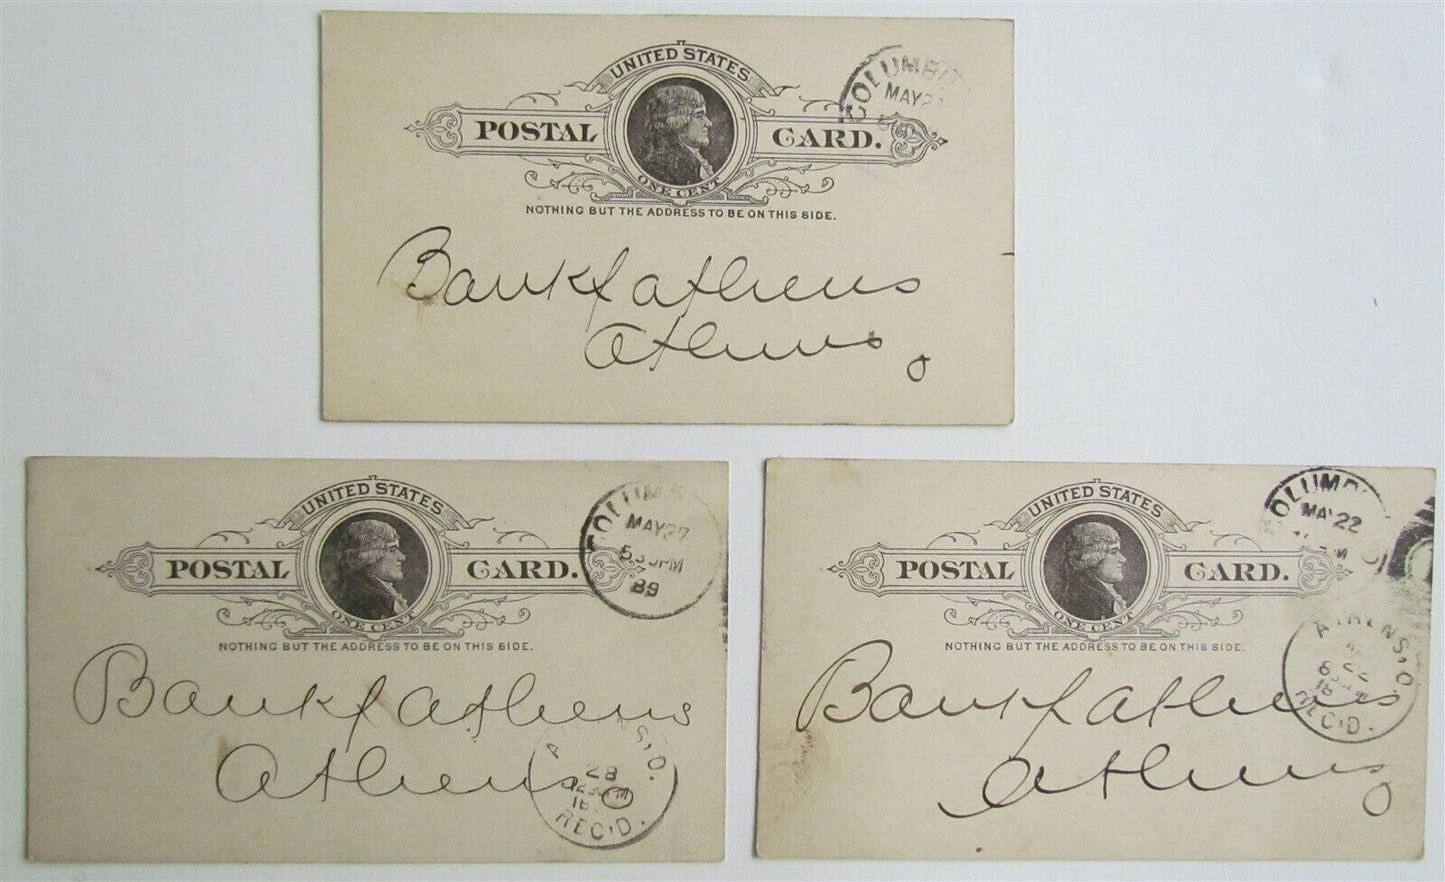 UNITED STATES
POSTAL CARD.
ONE CENT
NOTHING BUT THE ADDRESS TO BE ON THIS SIDE.
MAY
Bank of athens
Athens, O
UNITED STATES
POSTAL CARD.
ONE CENT
NOTHING BUT THE ADDRESS TO BE ON THIS SIDE.
MAY 27
5 30 PM
89
Bank of athens
Athens O
28
REC'D.
UNITED STATES
POSTAL CARD.
ONE CENT
NOTHING BUT THE ADDRESS TO BE ON THIS SIDE.
MAY 22
Bank of athens
Athens O
ATHENS, O.
REC'D.